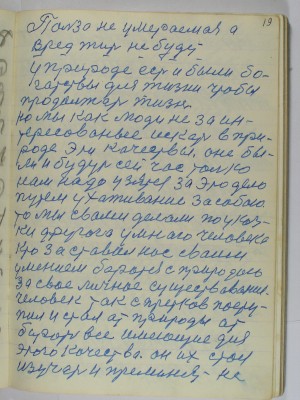 19
Польза не умераемая а
вред жир не буду
У природе есть и были бо-
гатствы для жизни чтобы
продолжат жизнь.
но мы как люди не заин-
тересованные искат в при-
роде Эти качествы. оне бы-
ли и будут сейчас только
нам надо узятся За Это дело
путем ухаживание За собою
то мы своим делом по указ-
ки другога умнаго человека
кто Заставал нас своим
умением боротся с природаю
За свое личное существование.
человек так с предков посту-
пил и стал от природы от
бират все имеющие для
Этого качества. он их стал
изучат и применят не